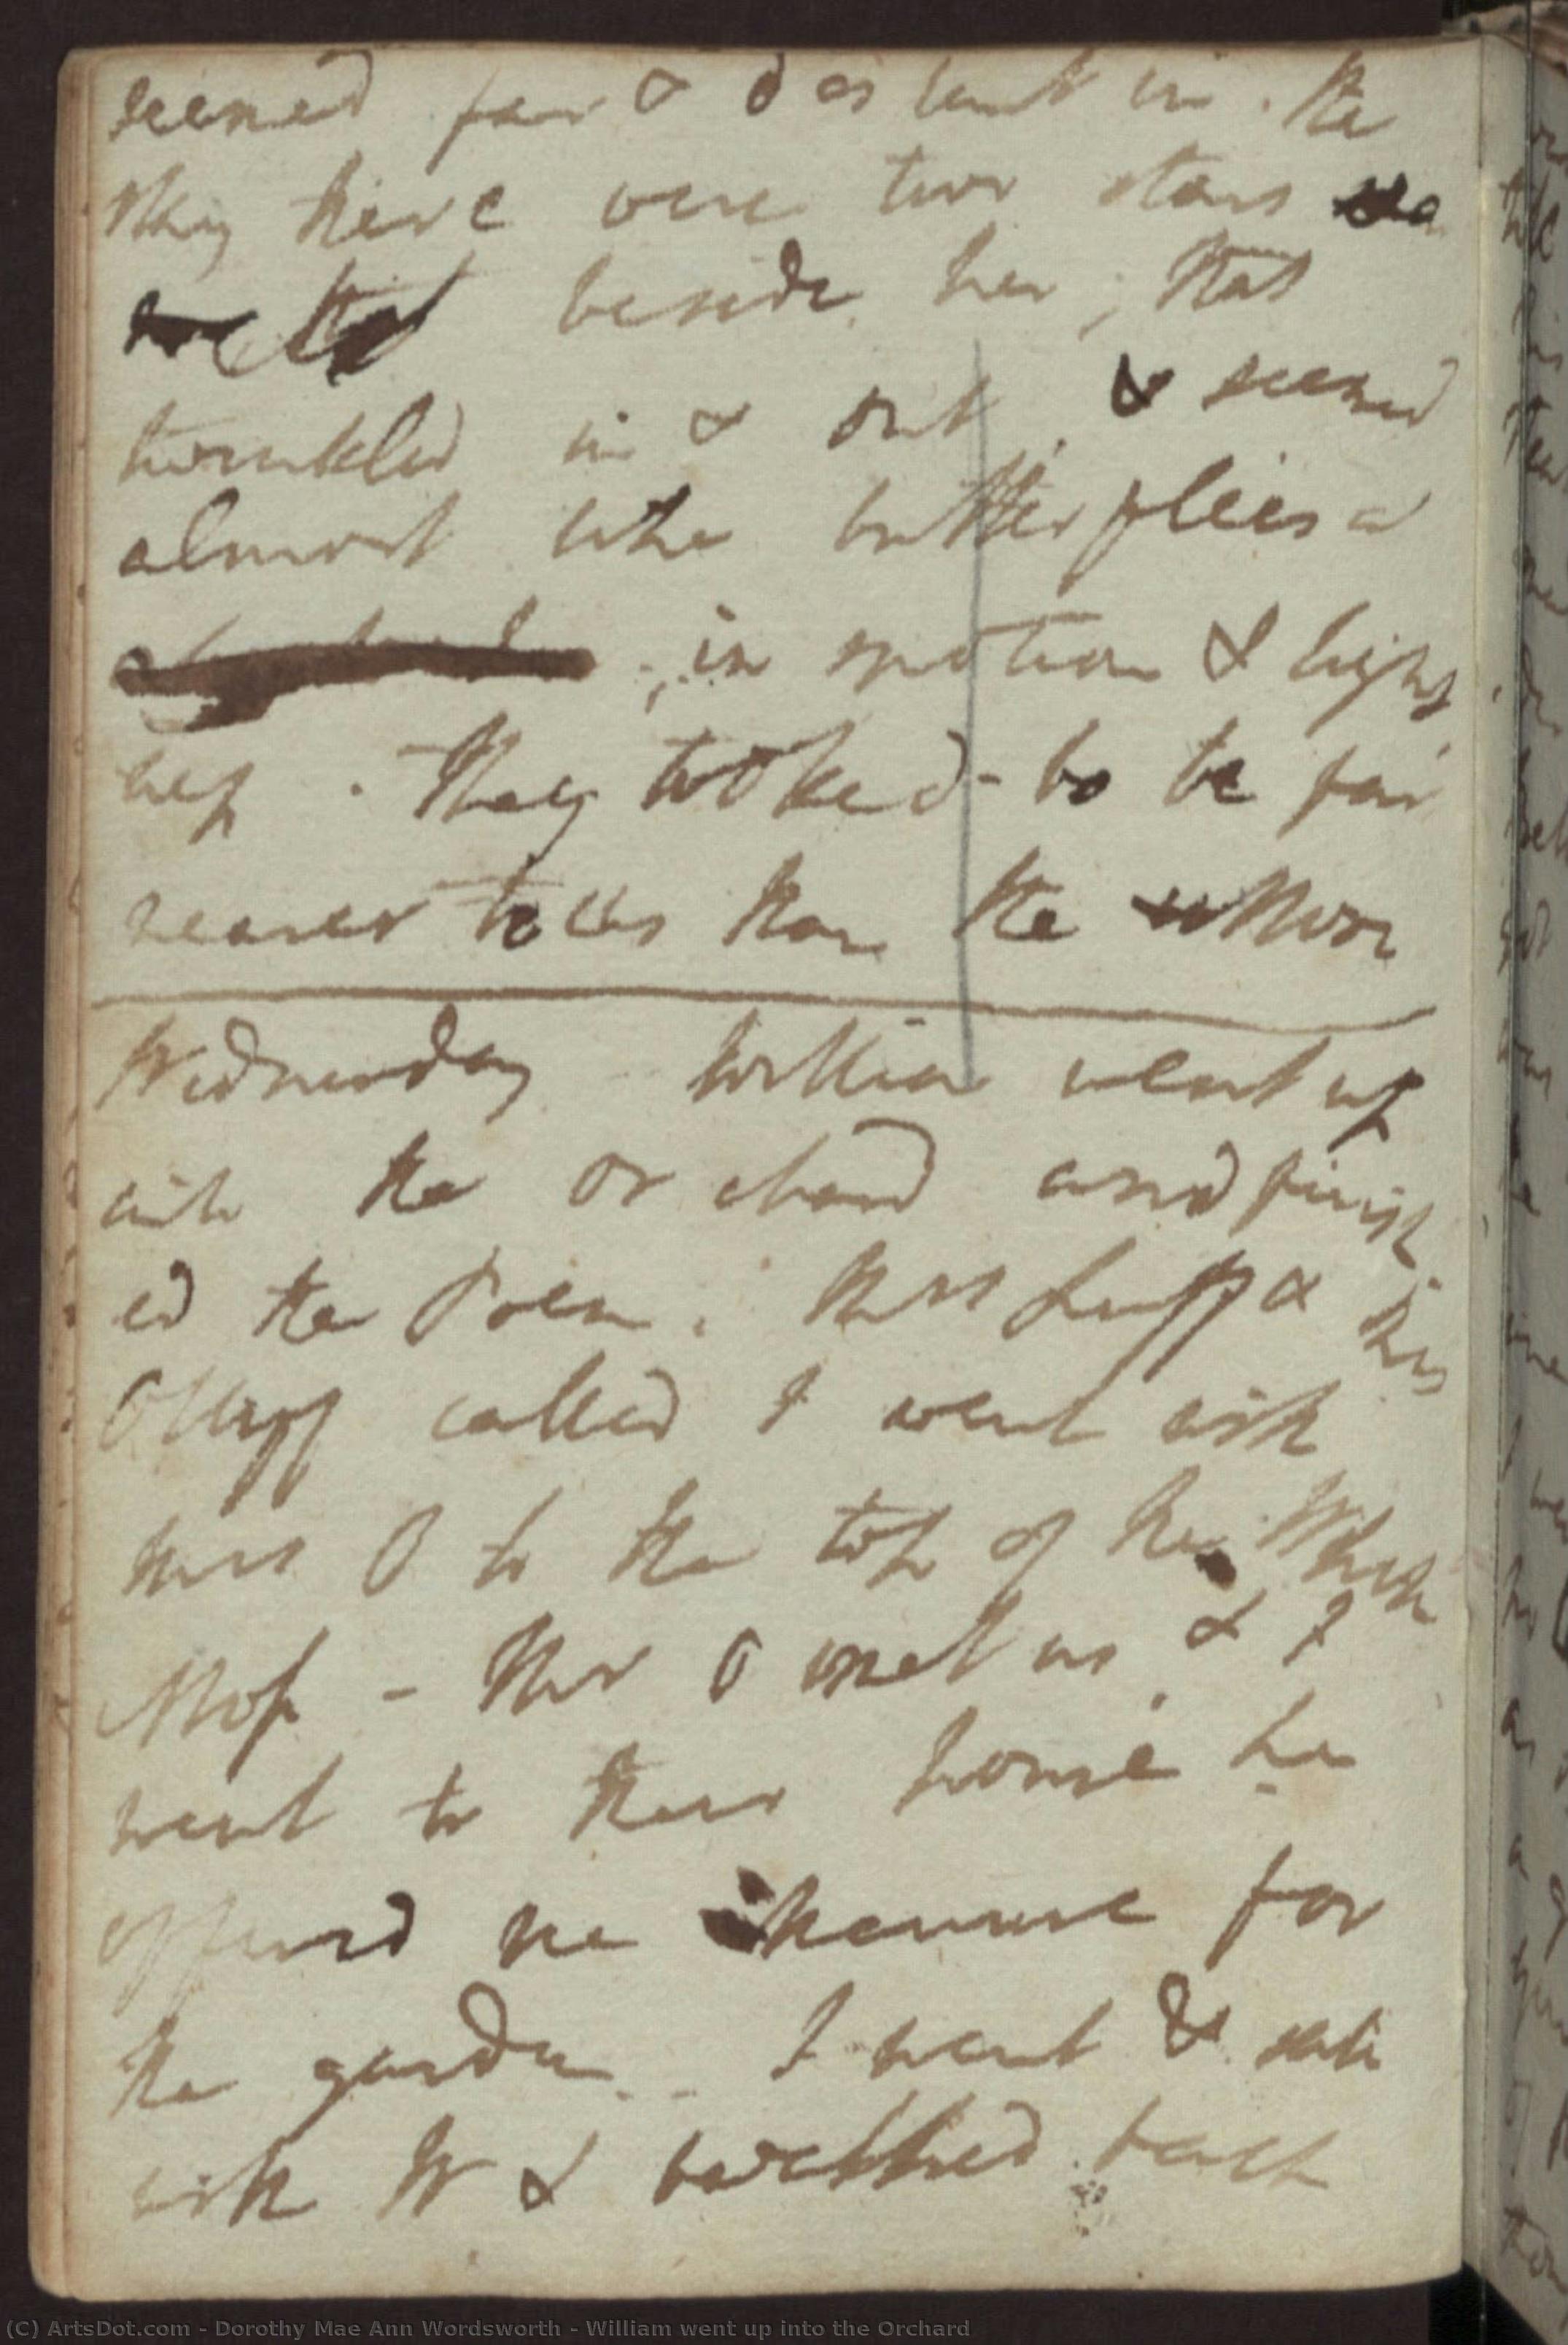 seemed far & distant in the
sky there were two stars
beside her, that
twinkled in & out, & seemed
almost like butterflies
in motion & light
ness. They looked to be far
nearer to us than the Moon
Wednesday William went up
into the orchard and finish
ed the Poem. Mrs Luff & Mrs
Olliff called I went with
Mrs O to the top of the White
Moss - Mr O met us & I
went to their house he
offered me manure for
the garden. I went & sate
with W & walked back
(C) ArtsDot.com - Dorothy Mae Ann Wordsworth - William went up into the Orchard